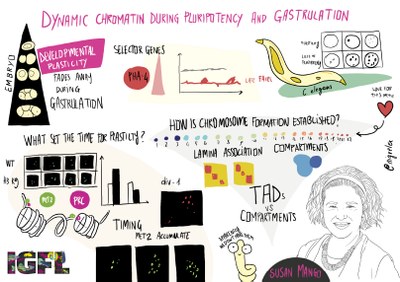 DYNAMIC CHROMATIN DURING PLURIPOTENCY AND GASTRULATION
EMBRYO
DEVELOPMENTAL
PLASTICITY
FADES AWAY
DURING
GASTRULATION
SELECTOR GENES
PHA-4
LATE PAIRS
C. elegans
LOVE FOR
WHAT SET THE TIME FOR PLASTICITY?
WT
MET2
PRC
div-1
HOW IS CHROMOSOME FORMATION ESTABLISHED?
LAMINA ASSOCIATION
COMPARTMENTS
TADs
VS
COMPARTMENTS
TIMING
MET2 ACCUMULATE
IGFL
SUSAN MANGO